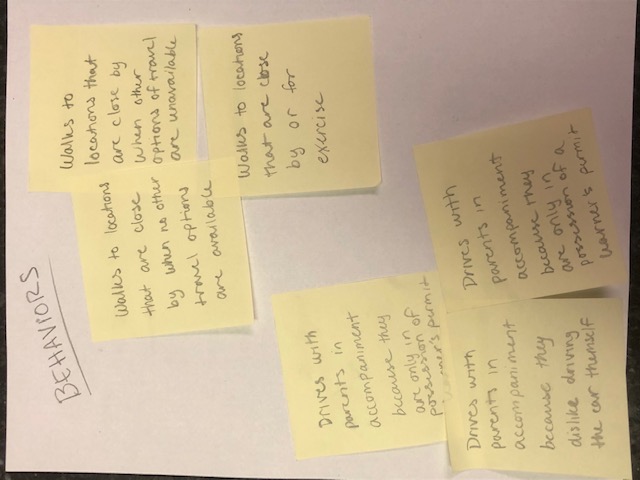 BEHAVIORS
Walks to locations
that are close
by when no other
travel options
are available
Walks to
locations that
are close by
when other
options of travel
are unavailable
Walks to locations
that are close
by or for
exercise
Drives with
parents in
accompaniment
because they
are only in
possession of
learner's permit
Drives with
parents in
accompaniment
because they
dislike driving
the car themself
Drives with
parents in
accompaniment
because they
are only in
possession of a
learner's permit